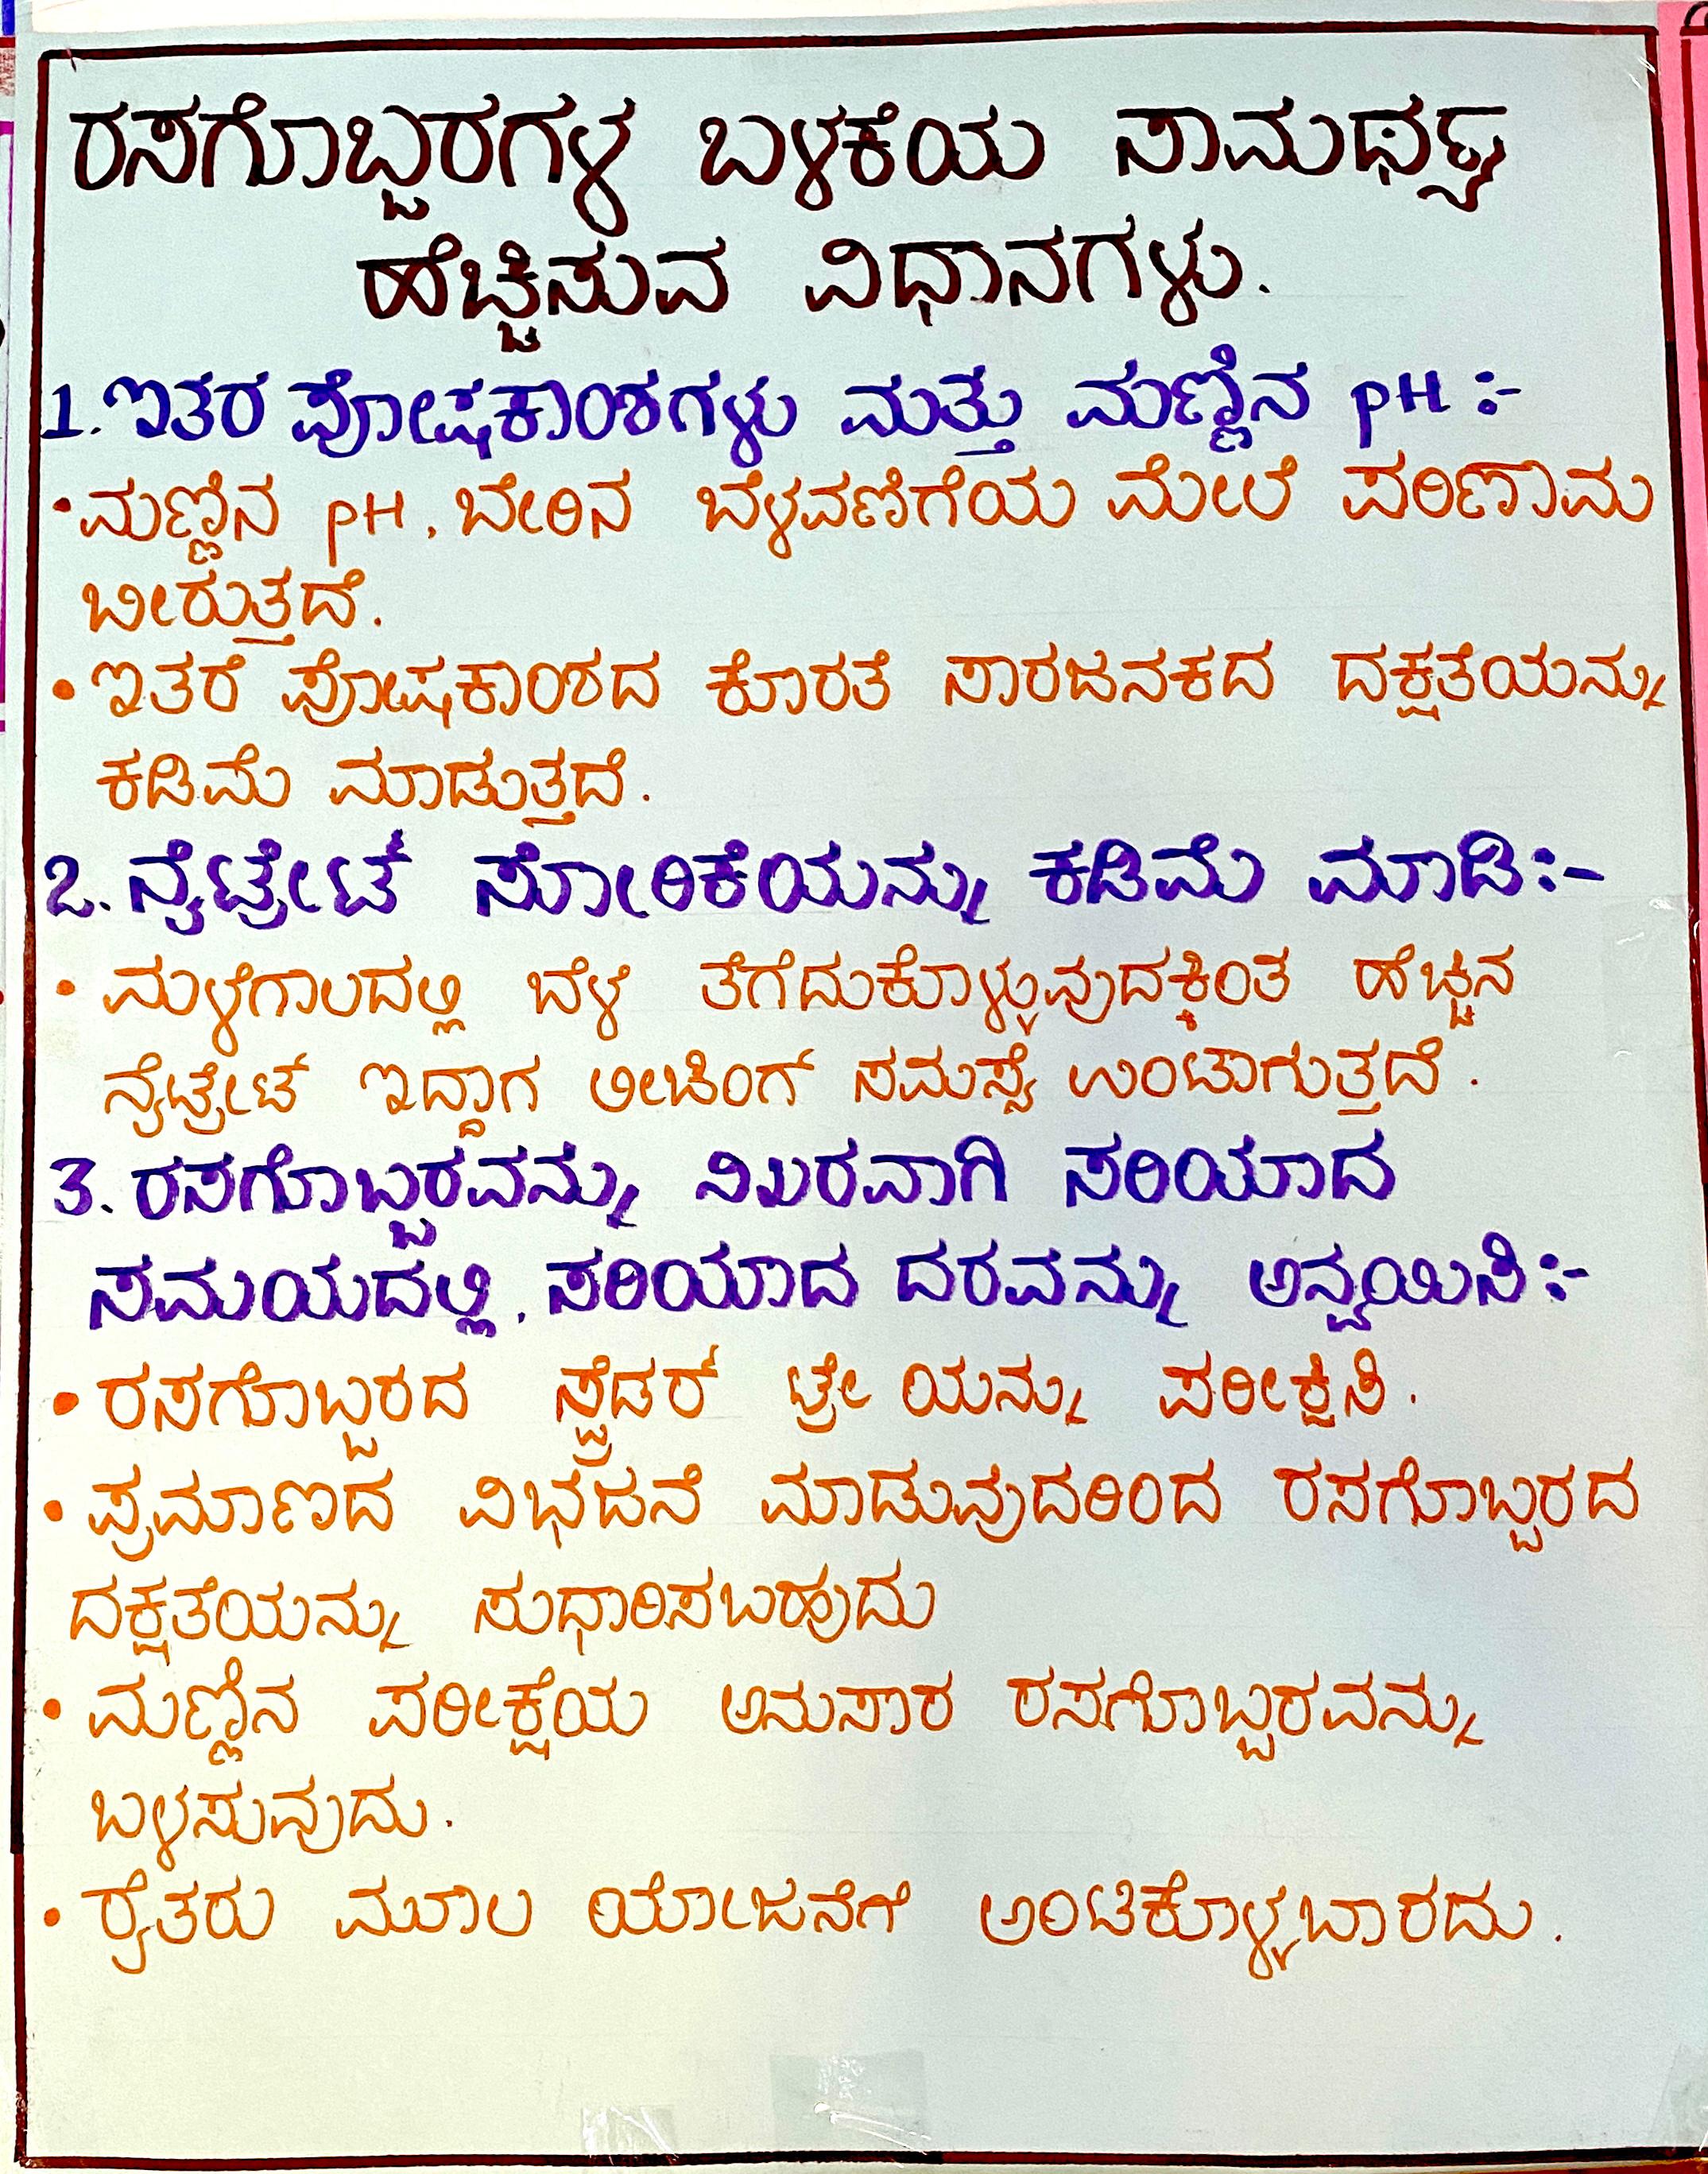 ರಸಗೊಬ್ಬರಗಳ ಬಳಕೆಯ ಸಾಮರ್ಥ್ಯ
ಹೆಚ್ಚಿಸುವ ವಿಧಾನಗಳು.
1. ಇತರ ಪೋಷಕಾಂಶಗಳು ಮತ್ತು ಮಣ್ಣಿನ pH :-
• ಮಣ್ಣಿನ pH, ಬೇರಿನ ಬೆಳವಣಿಗೆಯ ಮೇಲೆ ಪರಿಣಾಮ
ಬೀರುತ್ತದೆ.
• ಇತರೆ ಪೋಷಕಾಂಶದ ಕೊರತೆ ಸಾರಜನಕದ ದಕ್ಷತೆಯನ್ನು
ಕಡಿಮೆ ಮಾಡುತ್ತದೆ.
2. ನೈಟ್ರೇಟ್ ಸೋರಿಕೆಯನ್ನು ಕಡಿಮೆ ಮಾಡಿ:-
• ಮಳೆಗಾಲದಲ್ಲಿ ಬೆಳೆ ತೆಗೆದುಕೊಳ್ಳುವುದಕ್ಕಿಂತ ಹೆಚ್ಚಿನ
ನೈಟ್ರೇಟ್ ಇದ್ದಾಗ ಲೀಚಿಂಗ್ ಸಮಸ್ಯೆ ಉಂಟಾಗುತ್ತದೆ.
3. ರಸಗೊಬ್ಬರವನ್ನು ನಿಖರವಾಗಿ ಸರಿಯಾದ
ಸಮಯದಲ್ಲಿ, ಸರಿಯಾದ ದರವನ್ನು ಅನ್ವಯಿಸಿ:-
• ರಸಗೊಬ್ಬರದ ಸ್ಪ್ರೆಡರ್ ಟ್ರೇ ಯನ್ನು ಪರೀಕ್ಷಿಸಿ.
• ಪ್ರಮಾಣದ ವಿಭಜನೆ ಮಾಡುವುದರಿಂದ ರಸಗೊಬ್ಬರದ
ದಕ್ಷತೆಯನ್ನು ಸುಧಾರಿಸಬಹುದು
• ಮಣ್ಣಿನ ಪರೀಕ್ಷೆಯ ಅನುಸಾರ ರಸಗೊಬ್ಬರವನ್ನು
ಬಳಸುವುದು.
• ರೈತರು ಮೂಲ ಯೋಜನೆಗೆ ಅಂಟಿಕೊಳ್ಳಬಾರದು.